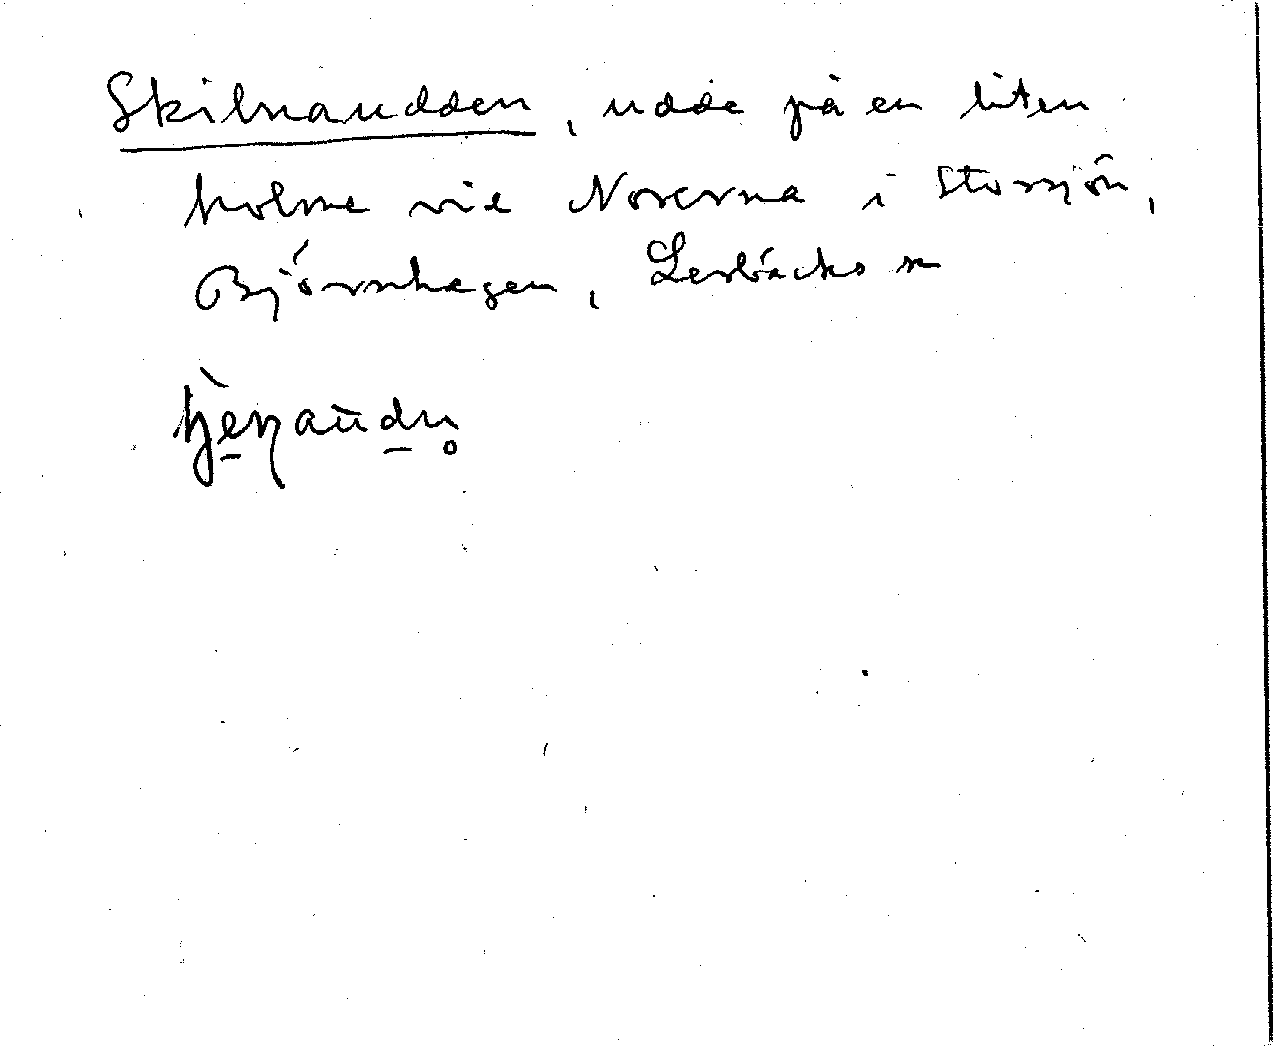 Skilnaudden, udde på en liten
holme vid Norerna i Storsjön,
Björnhagen, Lerbäcks sn